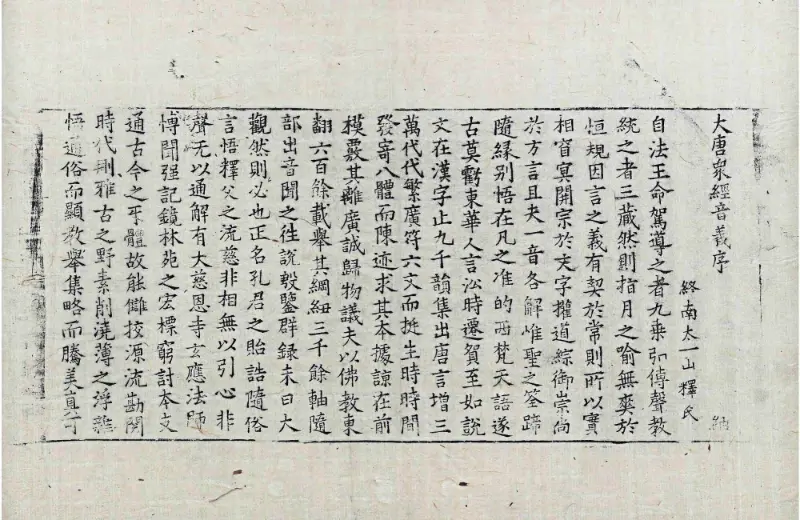 大唐衆經音義序
終南太一山釋氏
納
自法王命駕導之者九乘弘傳聲教
統之者三藏然則指月之喻無爽於
恒規因言之義有契於常則所以實
相窅冥開宗於文字權道綜御崇尚
於方言且夫一音各解惟聖之筌蹄
隨縁别悟在凡之准的西梵天語遂
古莫虧東華人言訟時還貿至如說
文在漢字止九千韻集出唐言增三
萬代代繁廣符六文而挺生時時間
發寄八體而陳迹求其本據諒在前
模覈其離廣誠歸物議夫以佛教東
翻六百餘載舉其綱紐三千餘軸隨
部出音聞之往說㲉鑒群録未曰大
觀然則必也正名孔君之貽誥隨俗
言悟釋父之流慈非相無以引心非
聲无以通解有大慈恩寺玄應法師
博聞强記鏡林苑之宏標窮討本支
通古今之平體故能讎挍源流勘閲
時代刪雅古之野素削澆薄之浮雜
悟通俗而顯教舉集略而騰美真可